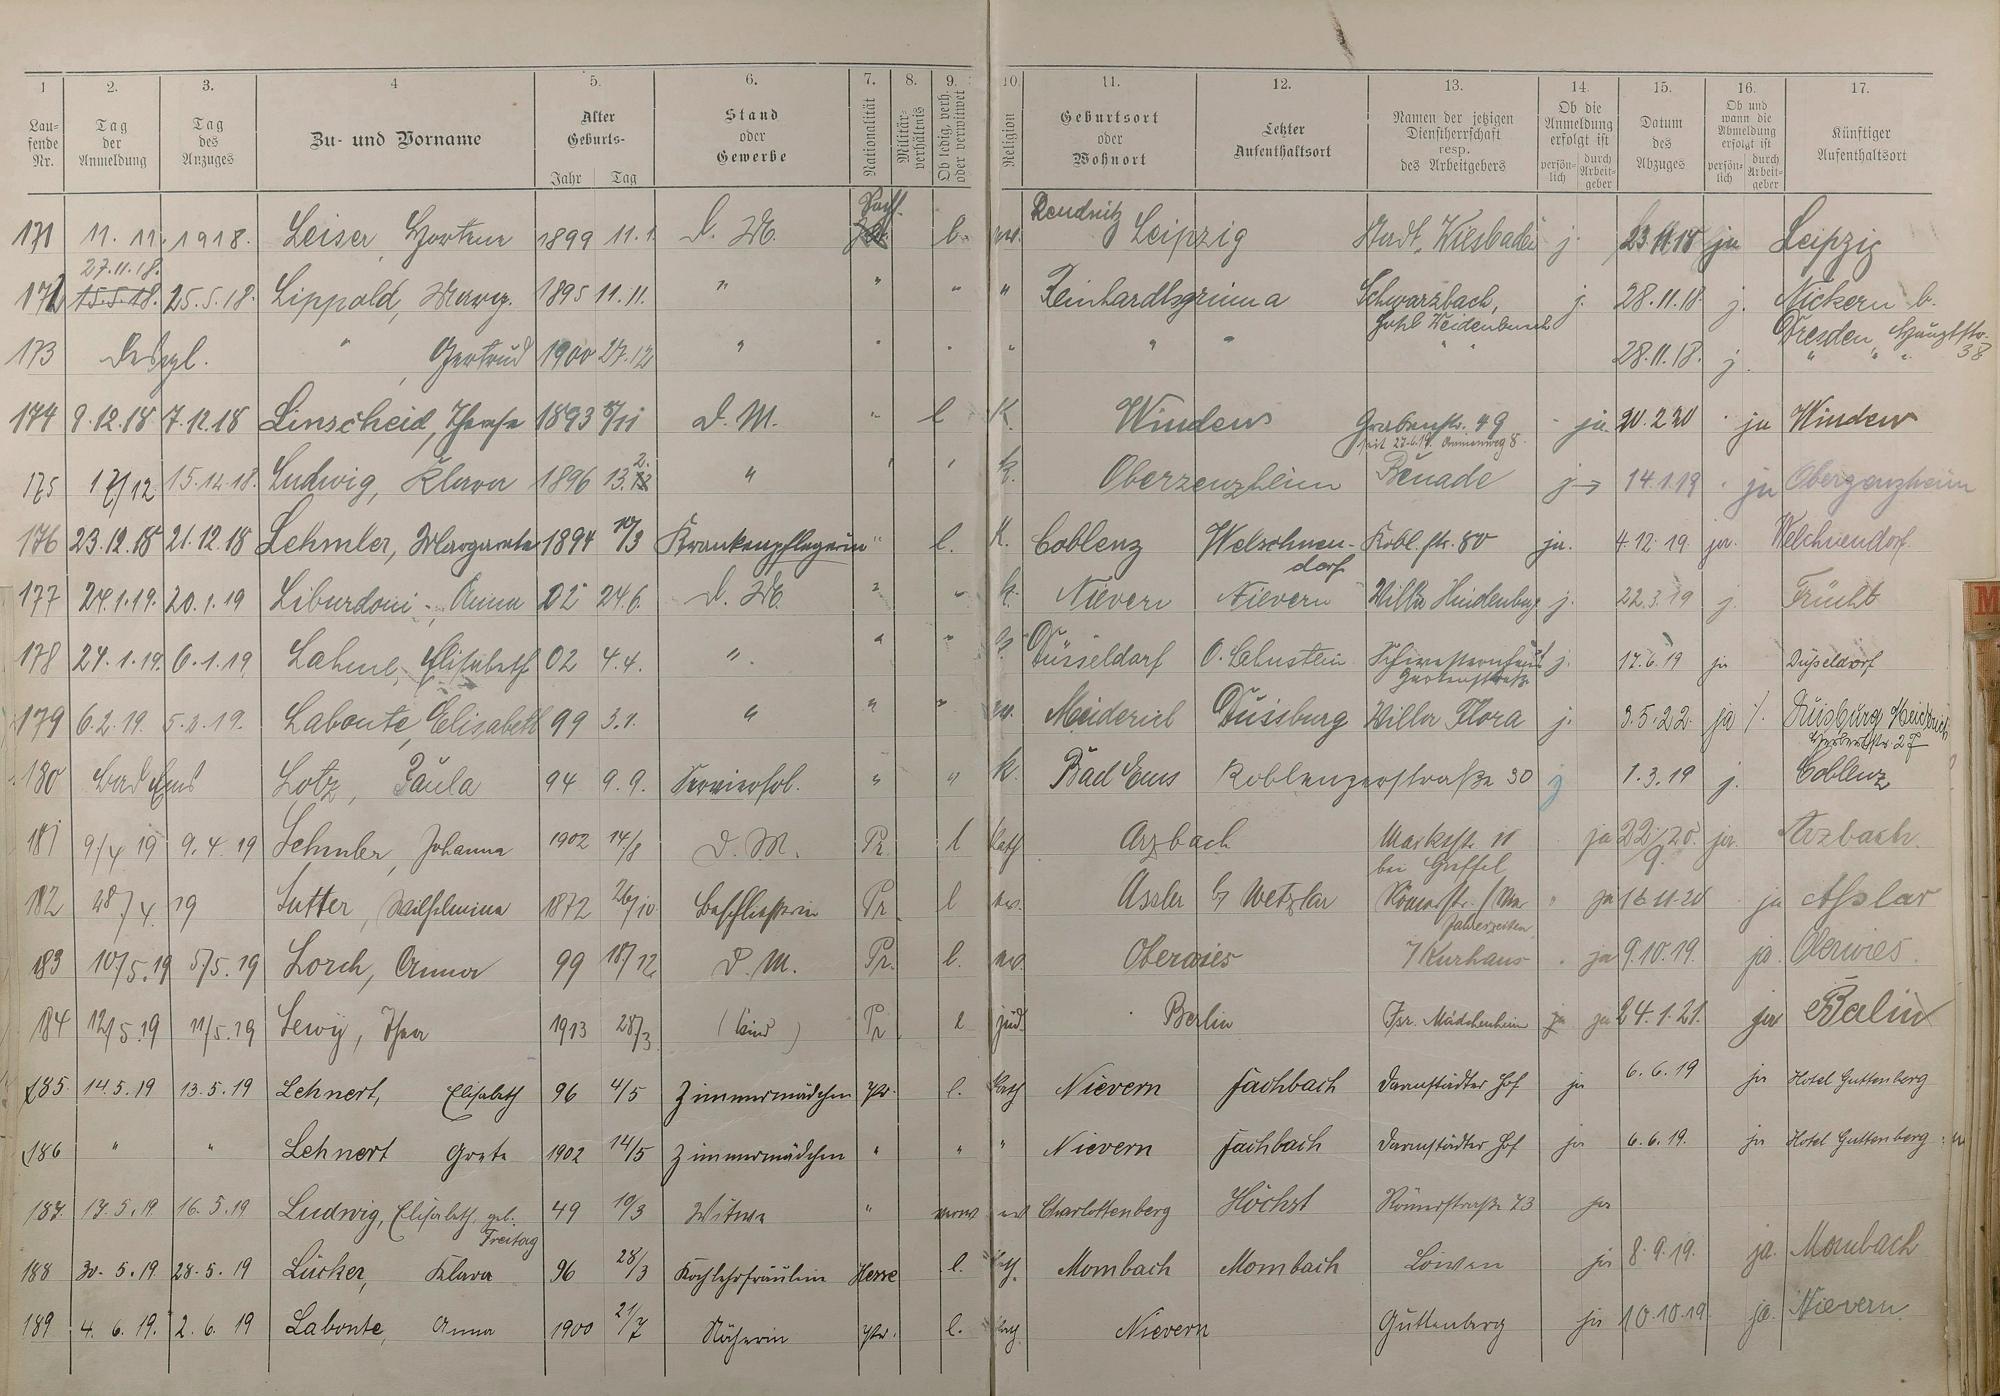 1 2. 3. 4 5. 6. 7. 8. 9. 10. 11. 12. 13. 14. 15. 16. 17.
Lau-fende Nr. Tag der Anmeldung Tag des Anzuges Zu- und Vorname Alter Geburts- Jahr Tag Stand oder Gewerbe Nationalität Militär-verhältnis Ob ledig, verh. oder verwitwet Religion Geburtsort oder Wohnort Letzter Aufenthaltsort Namen der jetzigen Dienstherrschaft resp. des Arbeitgebers Ob die Anmeldung erfolgt ist persön-lich durch Arbeit-geber Datum des Abzuges Ob und wann die Abmeldung erfolgt ist persön-lich durch Arbeit-geber Künftiger Aufenthaltsort
171 11. 11. 1918. Leiser, 1899 11.1. D. M. Sachs. l. ev. Reudnitz Leipzig Stadt Wiesbaden j. 23.11.18 ja Leipzig
27.11.18.
172 15.5.18. 25.5.18. Lippold, 1895 11.11. " " " " Reinhardtsgrimma Schwarzbach, j. 28.11.18. j. Nickern b.
Hotel Weidenbusch Dresden, Hauptstr. 38
173 Desgl. " , Gertrud 1900 27.12 " " " " " " " " 28.11.18. j. " " "
174 9.12.18 7.12.18 Linscheid, Therese 1893 8/11 D. M. " l K. Winden Grabenstr. 49 ja. 20.2.20 ja Winden
seit 27.6.19.
175 17/12 15.12.18. Ludwig, Klara 1896 13.2. " " " k. Oberzenzheim Benade j 14.1.19 ja
176 23.12.18 21.12.18 Lehmler, Margarete 1894 10/3 Krankenpflegerin " l. K. Coblenz Welschnen-dorf Kobl. str. 80 ja. 4.12.19. ja. Welchnendorf.
177 24.1.19. 20.1.19 Liburdoni, Anna 02 24.6. D. M. " " k. Nievern Nievern Villa Hindenburg j. 22.3.19 j. Frücht
178 24.1.19. 6.1.19 Lahme, Elisabeth 02 4.4. " " " Düsseldorf O. Lahnstein j. 17.6.19 ja Düsseldorf
179 6.2.19. 5.2.19. Labonte, Elisabeth 99 3.1. " " " ev. Meiderich Duisburg Villa Flora j. 3.5.22. ja Duisburg Meiderich
27
180 Bad Ems Lotz, Paula 94 9.9. " " k. Bad Ems Koblenzerstraße 30 j 1.3.19 j. Coblenz
181 9/4 19 9.4.19 Lehmler, Johanna 1902 14/8 D. M. Pr. l kath Arzbach Marktstr. 11 ja 22/9.20. ja. Arzbach.
bei Griffel
182 28/4. 19 Sutter, Wilhelmine 1872 26/10 Beschließerin Pr. l ev. Asslar b/ Wetzlar Römerstr. / Vier ja 16.11.20 ja Asslar
Jahreszeiten
183 10/5.19 5/5.19 Lorch, Anna 99 18/12 D. M. Pr. l. ev. Oberwies Kurhaus ja 9.10.19. ja. Oberwies.
184 12/5.19 11/5.19 Lewy, Thea 1913 28/3 (Kind) Pr l jüd. Berlin Isr. Mädchenheim ja ja 24.1.21. ja Berlin
185 14.5.19 13.5.19 Lehnert, Elisabeth 96 4/5 Zimmermädchen Pr. l. kath Nievern Fachbach Darmstädter Hof ja 6.6.19 ja Hotel Guttenberg
186 " " Lehnert Grete 1902 14/5 Zimmermädchen " " " Nievern Fachbach Darmstädter Hof ja 6.6.19. ja Hotel Guttenberg
187. 17.5.19 16.5.19 Ludwig, Elisabeth, geb. 49 10/3 Witwe " verw ev Charlottenberg Höchst Römerstraße 73 ja
Freitag
188 30.5.19. 28.5.19 Lücker, Klara 96 28/3 Kochlehrfräulein Hesse l. kath. Mombach Mombach Löwen ja 8.9.19. ja. Mombach
189 4.6.19. 2.6.19 Labonte, Anna 1900 21/7 Näherin Pr. l. kath. Nievern Guttenberg ja 10.10.19. ja. Nievern.
M